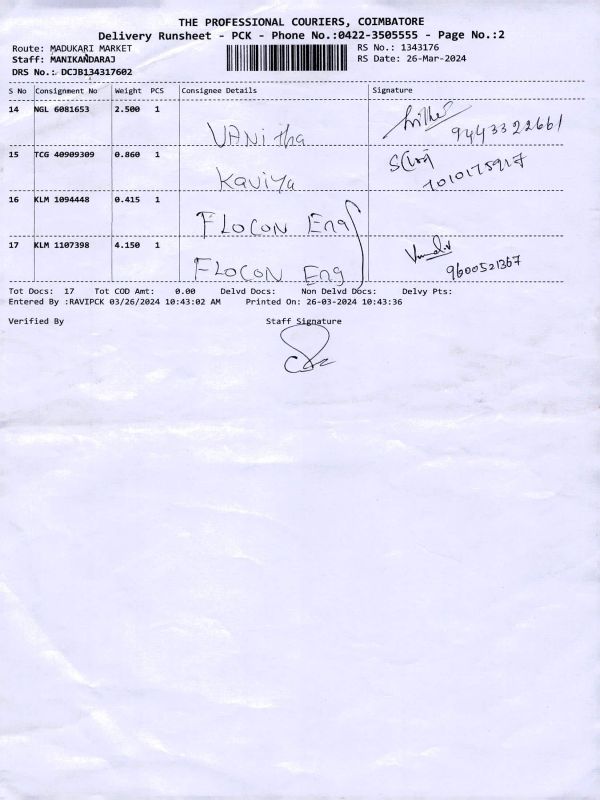 THE PROFESSIONAL COURIERS, COIMBATORE
Delivery Runsheet - PCK - Phone No.:0422-3505555 - Page No.:2
Route: MADUKARI MARKET
RS No.: 1343176
Staff: MANIKANDARAJ
RS Date: 26-Mar-2024
DRS No.: DCJB134317602
S No Consignment No Weight PCS Consignee Details Signature
14 NGL 6081653 2.500 1
VANitha 9443322661
15 TCG 40909309 0.860 1
Kaviya 7010175917
16 KLM 1094448 0.415 1
FLOCON Eng
17 KLM 1107398 4.150 1
FLOCON Eng 9600521367
Tot Docs: 17 Tot COD Amt: 0.00 Delvd Docs: Non Delvd Docs: Delvy Pts:
Entered By :RAVIPCK 03/26/2024 10:43:02 AM Printed On: 26-03-2024 10:43:36
Verified By Staff Signature